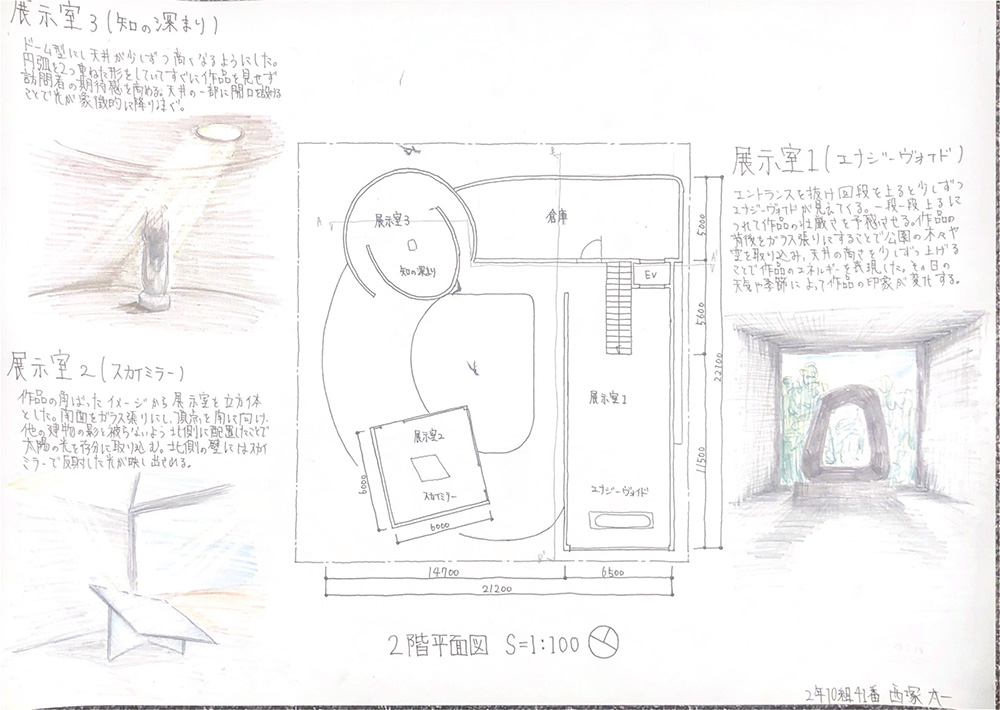 展示室3(知の深まり)
ドーム型にし天井が少しずつ高くなるようにした。
円弧を2つ重ねた形をしていてすぐに作品を見せず
訪問者の期待感を高める。天井の一部に開口を設ける
ことで光が象徴的に降り注ぐ。
展示室1(エナジーヴォイド)
エントランスを抜け回段を上ると少しずつ
エナジーヴォイドが見えてくる。一段一段上るに
つれて作品の壮厳さを予感させる。作品の
背後をガラス張りにすることで公園の木々や
空を取り込み、天井の高さを少しずつ上げる
ことで作品のエネルギーを表現した。その日の
天気や季節によって作品の印象が変化する。
展示室2(スカイミラー)
作品の角ばったイメージから展示室を立方体
とした。南面をガラス張りにし、頂点を南に向け、
他の建物の影と被らないよう北側に配置したことで
太陽の光を存分に取り込む。北側の壁にはスカイ
ミラーで反射した光が映し出される。
展示室3
知の深まり
倉庫
EV
展示室1
エナジーヴォイド
展示室2
スカイミラー
A
A'
6000
6000
5000
5600
11500
22100
14700
6500
21200
2階平面図 S=1:100
2年10組41番 西塚 太一